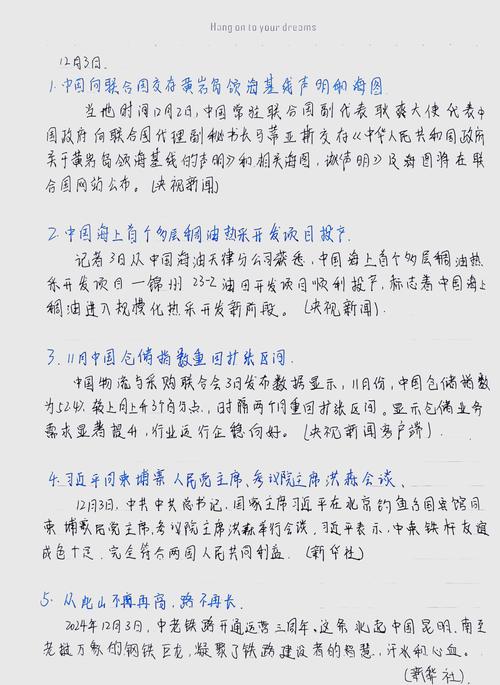 Hang on to your dreams
12月3日.
1. 中国向联合国交存黄岩岛领海基线声明和海图
当地时间12月2日,中国常驻联合国副代表耿爽大使代表中
国政府向联合国代理副秘书长马蒂亚斯交存《中华人民共和国政府
关于黄岩岛领海基线的声明》和相关海图,该《声明》及海图将在联
合国网站公布。(央视新闻)
2. 中国海上首个多层稠油热采开发项目投产.
记者3日从中国海油天津分公司获悉,中国海上首个多层稠油热
采开发项目一锦州23-2油田开发项目顺利投产,标志着中国海上
稠油进入规模化热采开发新阶段。(央视新闻).
3. 11月中国仓储指数重回扩张区间.
中国物流与采购联合会3日发布数据显示,11月份,中国仓储指数
为52.4%.较上月上升3个百分点.,时隔两个月重回扩张区间。显示仓储业务
需求显著提升,行业运行企稳向好。(央视新闻客户端).
4. 习近平同柬埔寨人民党主席、参议院主席洪森会谈、
12月3日,中共中央总书记、国家主席习近平在北京钓鱼台国宾馆同
柬埔寨人民党主席、参议院主席洪森举行会谈。习近平表示,中柬铁杆友谊
成色十足.完全符合两国人民共同利益.(新华社)
5. 从此山不再高,路不再长.
2024年12月3日,中老铁路开通运营三周年。这条北起中国昆明、南至
老挝万象的钢铁巨龙,凝聚了铁路建设者的智慧、汗水和心血。
(新华社).